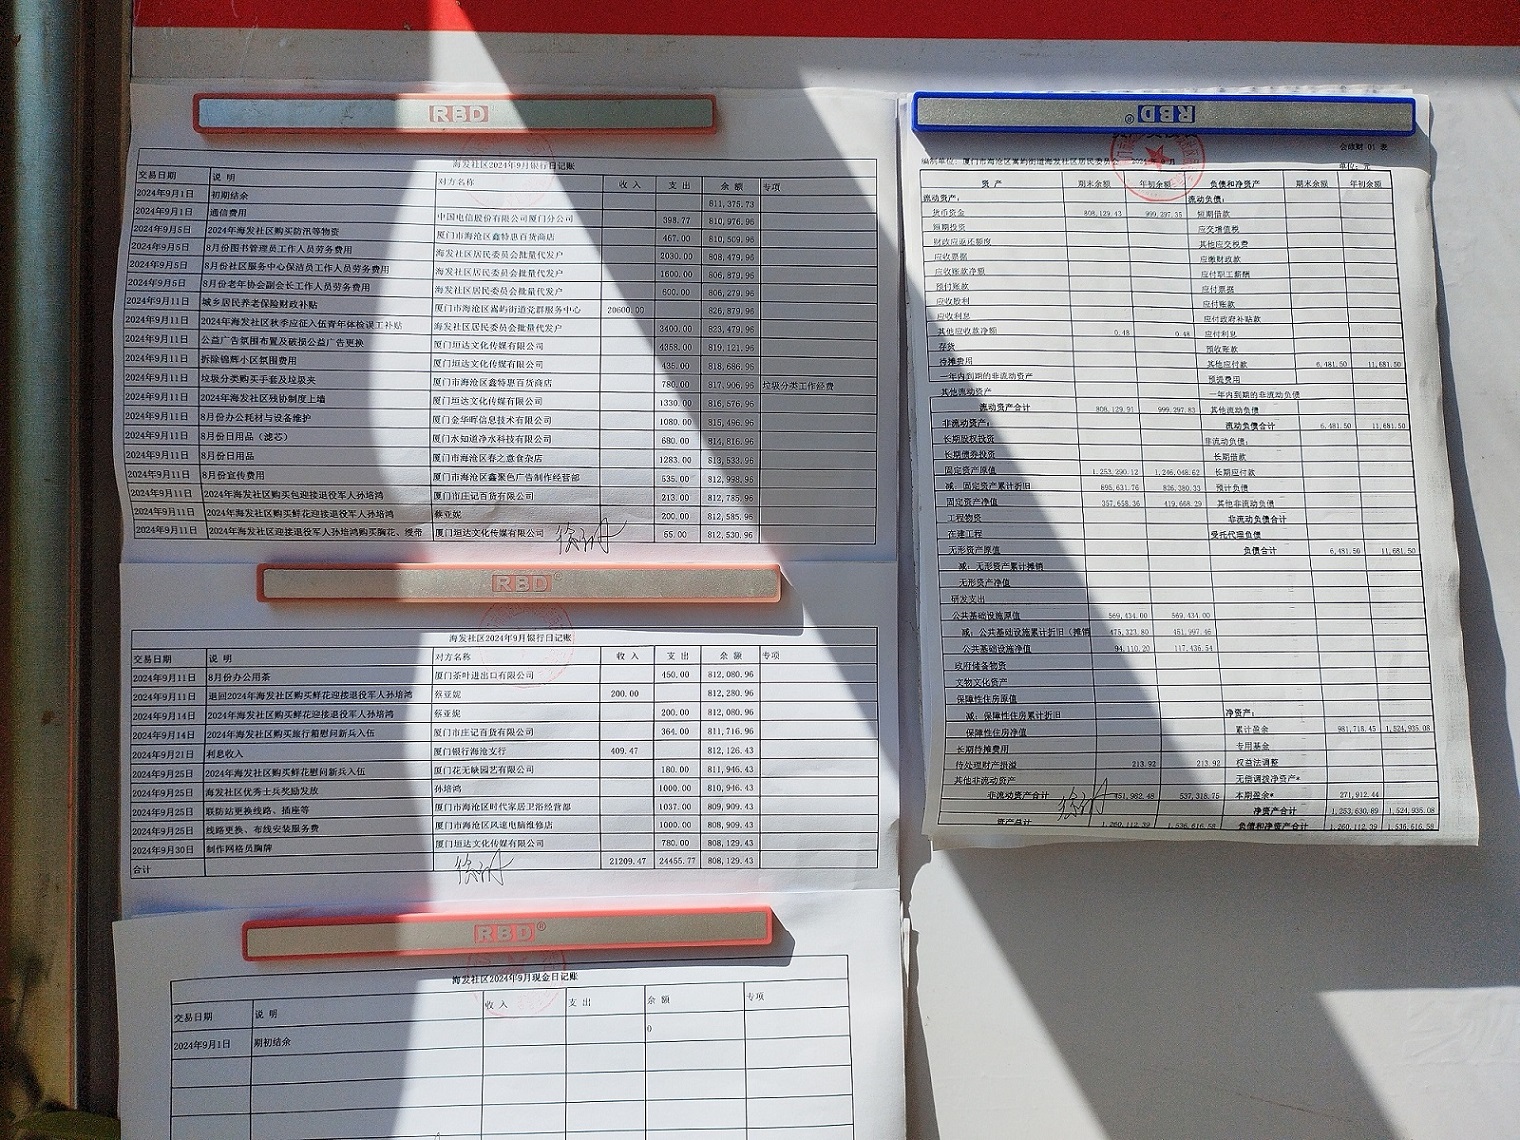 RBD
海发社区2024年9月银行日记账
交易日期 说 明 对方名称 收 入 支 出 余 额 专项
2024年9月1日 初期结余 811,375.73
2024年9月1日 通信费用 中国电信股份有限公司厦门分公司 398.77 810,976.96
2024年9月5日 2024年海发社区购买防汛等物资 厦门市海沧区鑫特惠百货商店 467.00 810,509.96
2024年9月5日 8月份图书管理员工作人员劳务费用 海发社区居民委员会批量代发户 2030.00 808,479.96
2024年9月5日 8月份社区服务中心保洁员工作人员劳务费用 海发社区居民委员会批量代发户 1600.00 806,879.96
2024年9月5日 8月份老年协会副会长工作人员劳务费用 海发社区居民委员会批量代发户 600.00 806,279.96
2024年9月11日 城乡居民养老保险财政补贴 厦门市海沧区嵩屿街道党群服务中心 20600.00 826,879.96
2024年9月11日 2024年海发社区秋季应征入伍青年体检误工补贴 海发社区居民委员会批量代发户 3400.00 823,479.96
2024年9月11日 公益广告氛围布置及破损公益广告更换 厦门垣达文化传媒有限公司 4358.00 819,121.96
2024年9月11日 拆除锦辉小区氛围费用 厦门垣达文化传媒有限公司 435.00 818,686.96
2024年9月11日 垃圾分类购买手套及垃圾夹 厦门市海沧区鑫特惠百货商店 780.00 817,906.96 垃圾分类工作经费
2024年9月11日 2024年海发社区残协制度上墙 厦门垣达文化传媒有限公司 1330.00 816,576.96
2024年9月11日 8月份办公耗材与设备维护 厦门金华晖信息技术有限公司 1080.00 815,496.96
2024年9月11日 8月份日用品（滤芯） 厦门水知道净水科技有限公司 680.00 814,816.96
2024年9月11日 8月份日用品 厦门市海沧区春之意食杂店 1283.00 813,533.96
2024年9月11日 8月份宣传费用 厦门市海沧区鑫聚色广告制作经营部 535.00 812,998.96
2024年9月11日 2024年海发社区购买包迎接退役军人孙培鸿 厦门市庄记百货有限公司 213.00 812,785.96
2024年9月11日 2024年海发社区购买鲜花迎接退役军人孙培鸿 蔡亚妮 200.00 812,585.96
2024年9月11日 2024年海发社区迎接退役军人孙培鸿购买胸花、绶带 厦门垣达文化传媒有限公司 55.00 812,530.96
RBD
海发社区2024年9月银行日记账
交易日期 说 明 对方名称 收 入 支 出 余 额 专项
2024年9月11日 8月份办公用茶 厦门茶叶进出口有限公司 450.00 812,080.96
2024年9月11日 退回2024年海发社区购买鲜花迎接退役军人孙培鸿 蔡亚妮 200.00 812,280.96
2024年9月14日 2024年海发社区购买鲜花迎接退役军人孙培鸿 蔡亚妮 200.00 812,080.96
2024年9月14日 2024年海发社区购买旅行箱慰问新兵入伍 厦门市庄记百货有限公司 364.00 811,716.96
2024年9月21日 利息收入 厦门银行海沧支行 409.47 812,126.43
2024年9月25日 2024年海发社区购买鲜花慰问新兵入伍 厦门花无缺园艺有限公司 180.00 811,946.43
2024年9月25日 海发社区优秀士兵奖励发放 孙培鸿 1000.00 810,946.43
2024年9月25日 联防站更换线路、插座等 厦门市海沧区时代家居卫浴经营部 1037.00 809,909.43
2024年9月25日 线路更换、布线安装服务费 厦门市海沧区风速电脑维修店 1000.00 808,909.43
2024年9月30日 制作网格员胸牌 厦门垣达文化传媒有限公司 780.00 808,129.43
合计 21209.47 24455.77 808,129.43
RBD®
海发社区2024年9月现金日记账
交易日期 说 明 收 入 支 出 余 额 专项
2024年9月1日 期初结余 0
RBD®
会政财 01 表
编制单位：厦门市海沧区嵩屿街道海发社区居民委员会 单位：元
资 产 期末余额 年初余额 负债和净资产 期末余额 年初余额
流动资产： 流动负债：
货币资金 808,129.43 999,297.35 短期借款
短期投资 应交增值税
财政应返还额度 其他应交税费
应收票据 应缴财政款
应收账款净额 应付职工薪酬
预付账款 应付票据
应收股利 应付账款
应收利息 应付政府补贴款
其他应收款净额 0.48 0.48 应付利息
存货 预收账款
待摊费用 其他应付款 6,481.50 11,681.50
一年内到期的非流动资产 预提费用
其他流动资产 一年内到期的非流动负债
流动资产合计 808,129.91 999,297.83 其他流动负债
非流动资产： 流动负债合计 6,481.50 11,681.50
长期股权投资 非流动负债：
长期债券投资 长期借款
固定资产原值 1,253,290.12 1,246,048.62 长期应付款
减：固定资产累计折旧 895,631.76 826,380.33 预计负债
固定资产净值 357,658.36 419,668.29 其他非流动负债
工程物资 非流动负债合计
在建工程 受托代理负债
无形资产原值 负债合计 6,481.50 11,681.50
减：无形资产累计摊销
无形资产净值
研发支出
公共基础设施原值 569,434.00 569,434.00
减：公共基础设施累计折旧（摊销 475,323.80 451,997.46
公共基础设施净值 94,110.20 117,436.54
政府储备物资
文物文化资产
保障性住房原值 净资产：
减：保障性住房累计折旧 累计盈余 981,718.45 1,524,935.08
保障性住房净值 专用基金
长期待摊费用 权益法调整
待处理财产损溢 213.92 213.92 无偿调拨净资产*
其他非流动资产 本期盈余* 271,912.44
非流动资产合计 451,982.48 537,318.75 净资产合计 1,253,630.89 1,524,935.08
资产总计 1,260,112.39 1,536,616.58 负债和净资产合计 1,260,112.39 1,536,616.58